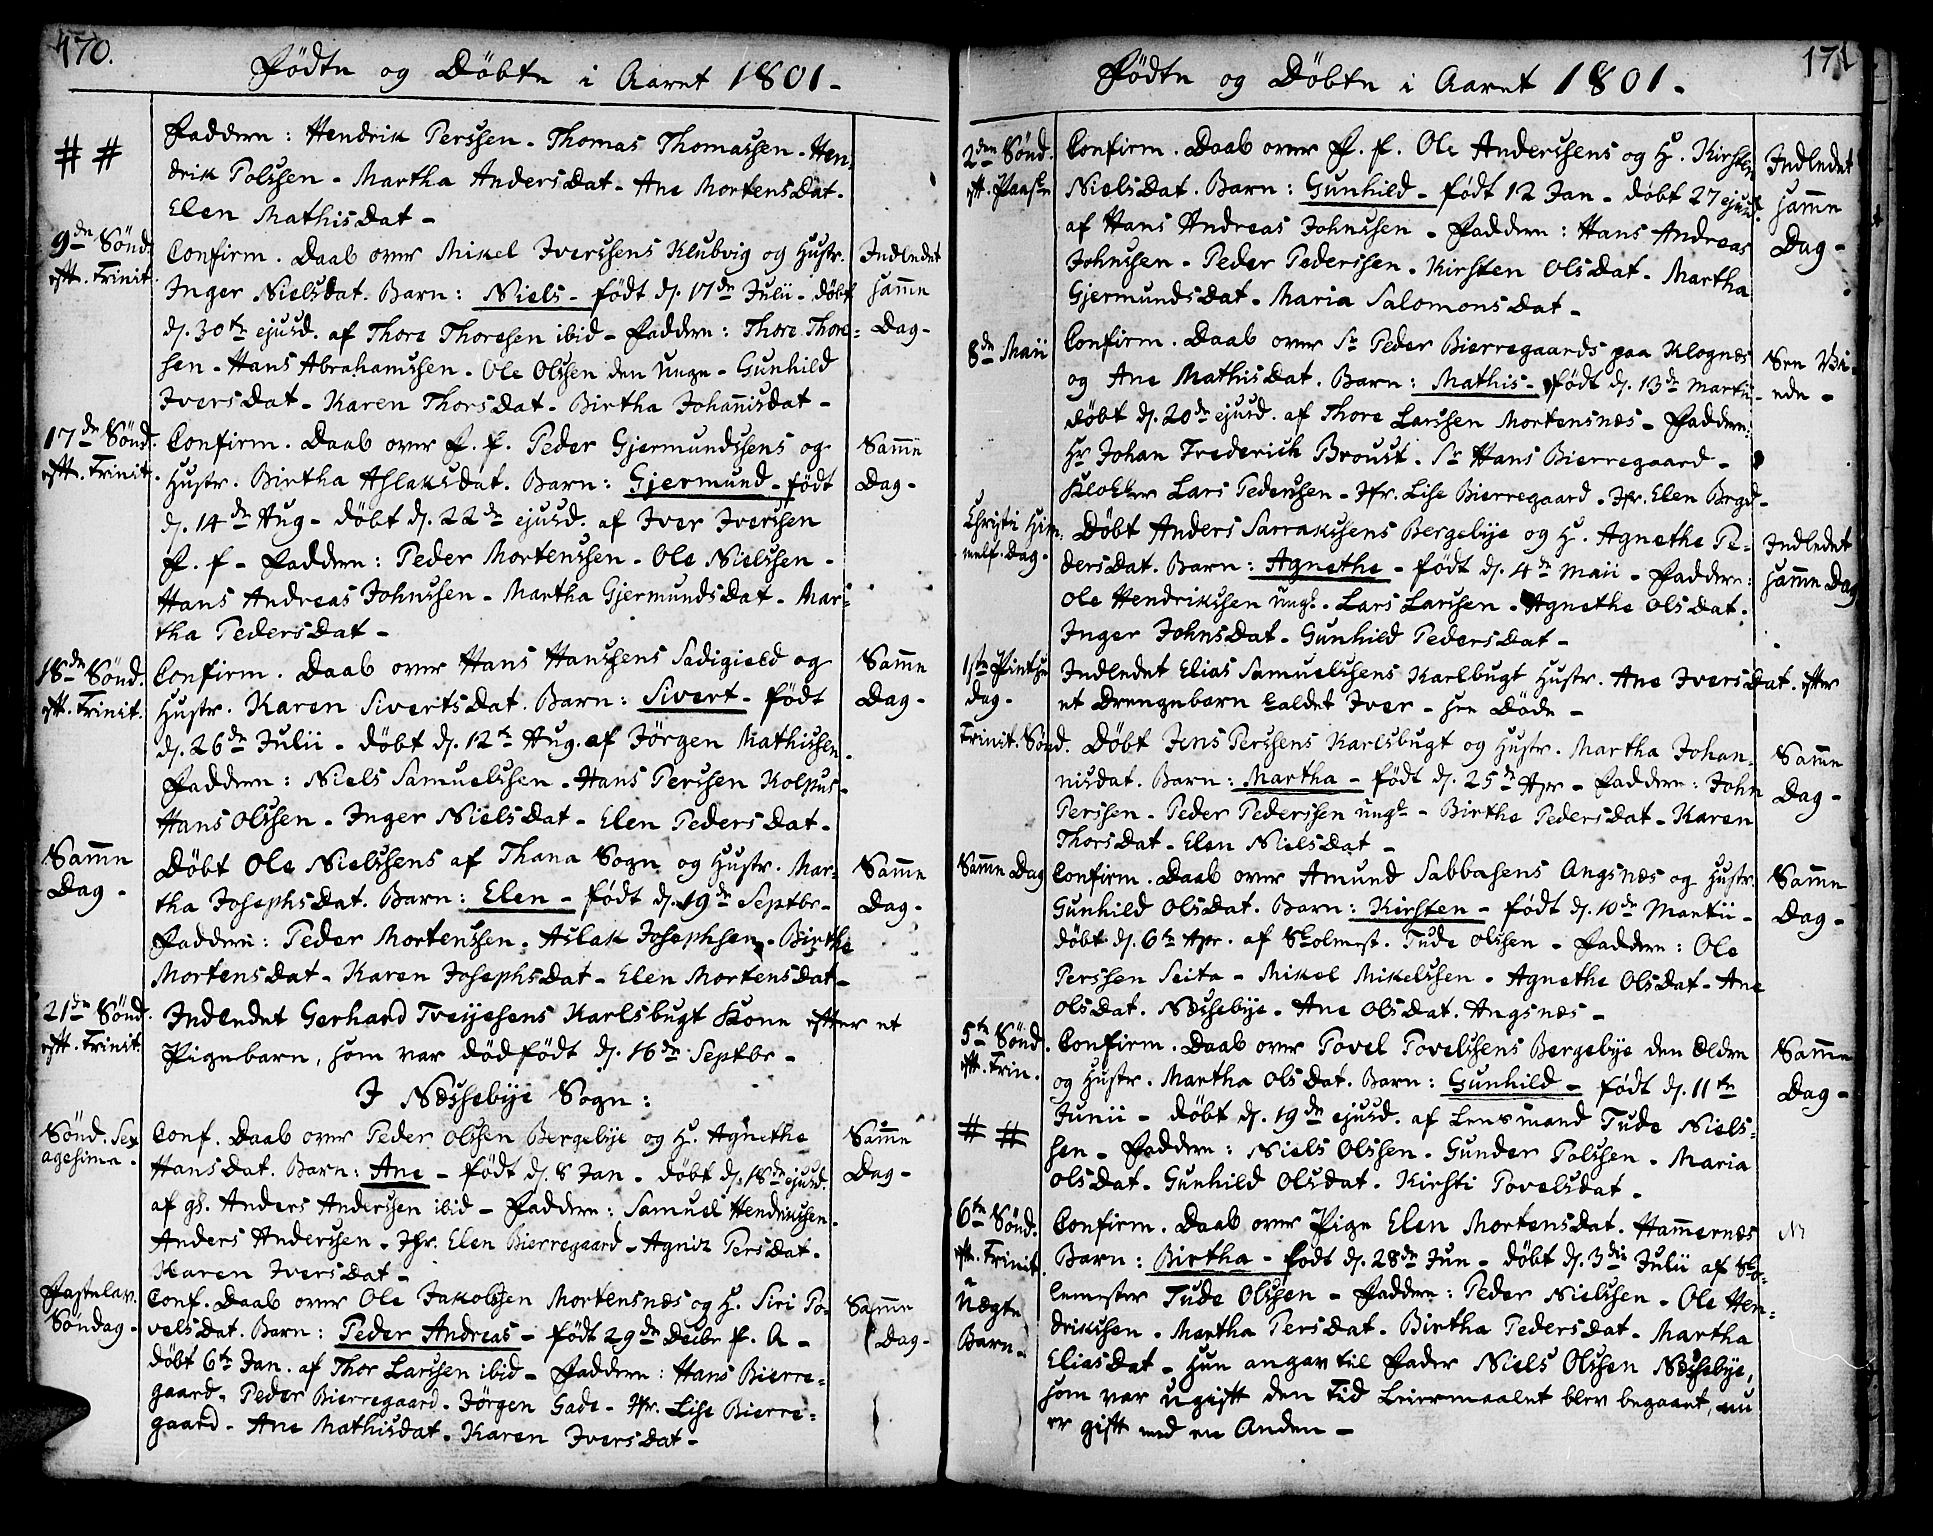 170.
Födte og Döbte i Aaret 1801 -
# #
Faddere: Hendrik Perssen - Thomas Thomassen - Hen-
drik Polssen - Martha AndersDat - Ane MortensDat -
Elen MathisDat -
9de Sönd.
eft. Trinit.
Confirm. Daab over Mikel Iverssens Klubvig og Hustr.
Inger Nielsdat. Barn: Niels - födt d. 17de Julii - döbt
d. 30te ejusd. af Thore Thoresen ibid - Faddere: Thore Thore-
sen - Hans Abrahamssen - Ole Olssen den unge - Gunhild
IversDat - Karen ThorsDat - Birtha Johannisdat -
Indledet
samme
Dag -
17de Sönd.
eft. Trinit.
Confirm. Daab over F. f. Peder Gjermundssens og
Hustr. Birtha Aslaksdat. Barn: Gjermund - födt
d. 14de Aug - döbt d. 22de ejusd. af Iver Iverssen
F. f - Faddere: Peder Mortenssen - Ole Nielssen -
Hans Andreas Johnssen - Martha GjermundsDat - Mar-
tha PedersDat -
Samme
Dag -
18de Sönd.
eft. Trinit.
Confirm. Daab over Hans Hanssens Sadigield og
Hustr. Karen SivertsDat. Barn: Sivert - födt
d. 26de Julii - döbt d. 12te Aug. af Jörgen Mathissen -
Faddere: Niels Samuelssen - Hans Perssen Kolpus -
Hans Olssen - Inger NielsDat - Elen PedersDat -
Samme
Dag -
Samme
Dag -
Döbt Ole Nielssens af Thana Sogn og Hustr. Mar-
tha JosephsDat. Barn: Elen - födt d. 19de Septbr -
Faddere: Peder Mortenssen - Aslak Josephsen - Birthe
MortensDat - Karen JosephsDat - Elen MortensDat -
Samme
Dag -
21de Sönd.
eft. Trinit.
Indledet Gerhard Treyesens Karlsbugt Kone efter et
Pigebarn, som var dödfödt d. 16de Septbr -
I Næssebye Sogn:
Sönd. Sex
agesima.
Conf. Daab over Peder Olssen Bergebye og H. Agnethe
HansDat. Barn: Ane - födt d. 8 Jan - döbt d. 18de ejusd.
af gl. Anders Anderssen ibid - Faddere: Samuel Hendrikssen -
Anders Anderssen - Jfr. Elen Bierregaard - Agnix PersDat -
Karen IversDat -
Samme
Dag -
Fastelav.
Söndag -
Conf. Daab over Ole Jakobssen Mortensnæs og H. Siri Po-
velsDat. Barn: Peder Andreas - födt 29de Decbr f. A -
döbt 6te Jan. af Thor Larssen ibid - Faddere: Hans Bierre-
gaard - Peder Bierregaard - Jörgen Gade - Jfr. Lise Bierre-
gaard - Ane Mathisdat - Karen IversDat -
Samme
Dag -
171
Födte og Döbte i Aaret 1801 -
2den Sönd.
eft. Paaske
Confirm. Daab over F. f. Ole Anderssens og H. Kirsten
NielsDat. Barn: Gunhild - födt 12 Jan - döbt 27 ejusd.
af Hans Andreas Johnssen - Faddere: Hans Andreas
Johnssen - Peder Pederssen - Kirsten OlsDat - Martha
GjermundsDat - Maria SalomonsDat -
Indledet
samme
Dag -
8de Maii
Confirm. Daab over Sr Peder Bierregaards paa Klognæs
og Ane MathisDat. Barn: Mathis - födt d. 13de Martii -
döbt d. 20de ejusd. af Thore Larssen Mortensnæs - Faddere:
Hr Johan Frederich Broust - Sr Hans Bierregaard -
Klokker Lars Pederssen - Jfr. Lise Bierregaard - Jfr. Elen Brgd -
Christi Him-
melf. Dag -
Döbt Anders Sarrakssens Bergebye og H. Agnethe Pe-
dersDat. Barn: Agnethe - födt d. 4de Maii - Faddere:
Ole Hendrikssen ungl. - Lars Larssen - Agnethe OlsDat -
Inger JohnsDat - Gunhild PedersDat -
Indledet
samme Dag
1ste Pintse
dag -
Indledet Elias Samuelssens Karlbugt Hustr. Ane IversDat. efter
et Drengebarn kaldet Iver - see Döde -
Trinit. Sönd.
Döbt Jens Perssens Karlsbugt og Hustr. Martha Johan-
nisdat. Barn: Martha - födt d. 25de Apr - Faddere: John
Perssen - Peder Pederssen ungd. - Birthe PedersDat - Karen
ThorsDat - Elen NielsDat -
Samme
Dag -
Samme Dag
Confirm. Daab over Amund Sabbasens Angsnæs og Hustr.
Gunhild OlsDat. Barn: Kirsten - födt d. 10de Martii -
döbt d. 6te Apr. af Skolmest. Tude Olssen - Faddere: Ole
Perssen Seita - Mikel Mikelssen - Agnethe OlsDat - Ane
OlsDat. Næssebye - Ane OlsDat. Angsnæs -
Samme
Dag -
5te Sönd.
eft. Trin.
Confirm. Daab over Povel Povelssens Bergebye den Eldre
og Hustr. Martha OlsDat. Barn: Gunhild - födt d. 11te
Junii - döbt d. 19de ejusd. af Lensmand Tude Niels-
sen - Faddere: Niels Olssen - Gunder Polssen - Maria
OlsDat - Gunhild Olsdat - Kirsti Povelsdat -
Samme
Dag -
# #
6te Sönd.
eft. Trinit.
Uægte
Barn -
Confirm. Daab over Pige Elen MortensDat. Hammernæs
Barn: Birtha - födt d. 28de Jun - döbt d. 3die Julii af Sko-
lemester Tude Olssen - Faddere: Peder Nielssen - Ole Hen-
drikssen - Martha PersDat - Birtha PedersDat - Martha
EliasDat - Hun angav til Fader Niels Olssen Næssebye,
som var ugift den Tid Leiermaalet blev begaaet, nu
er gift med en Anden -